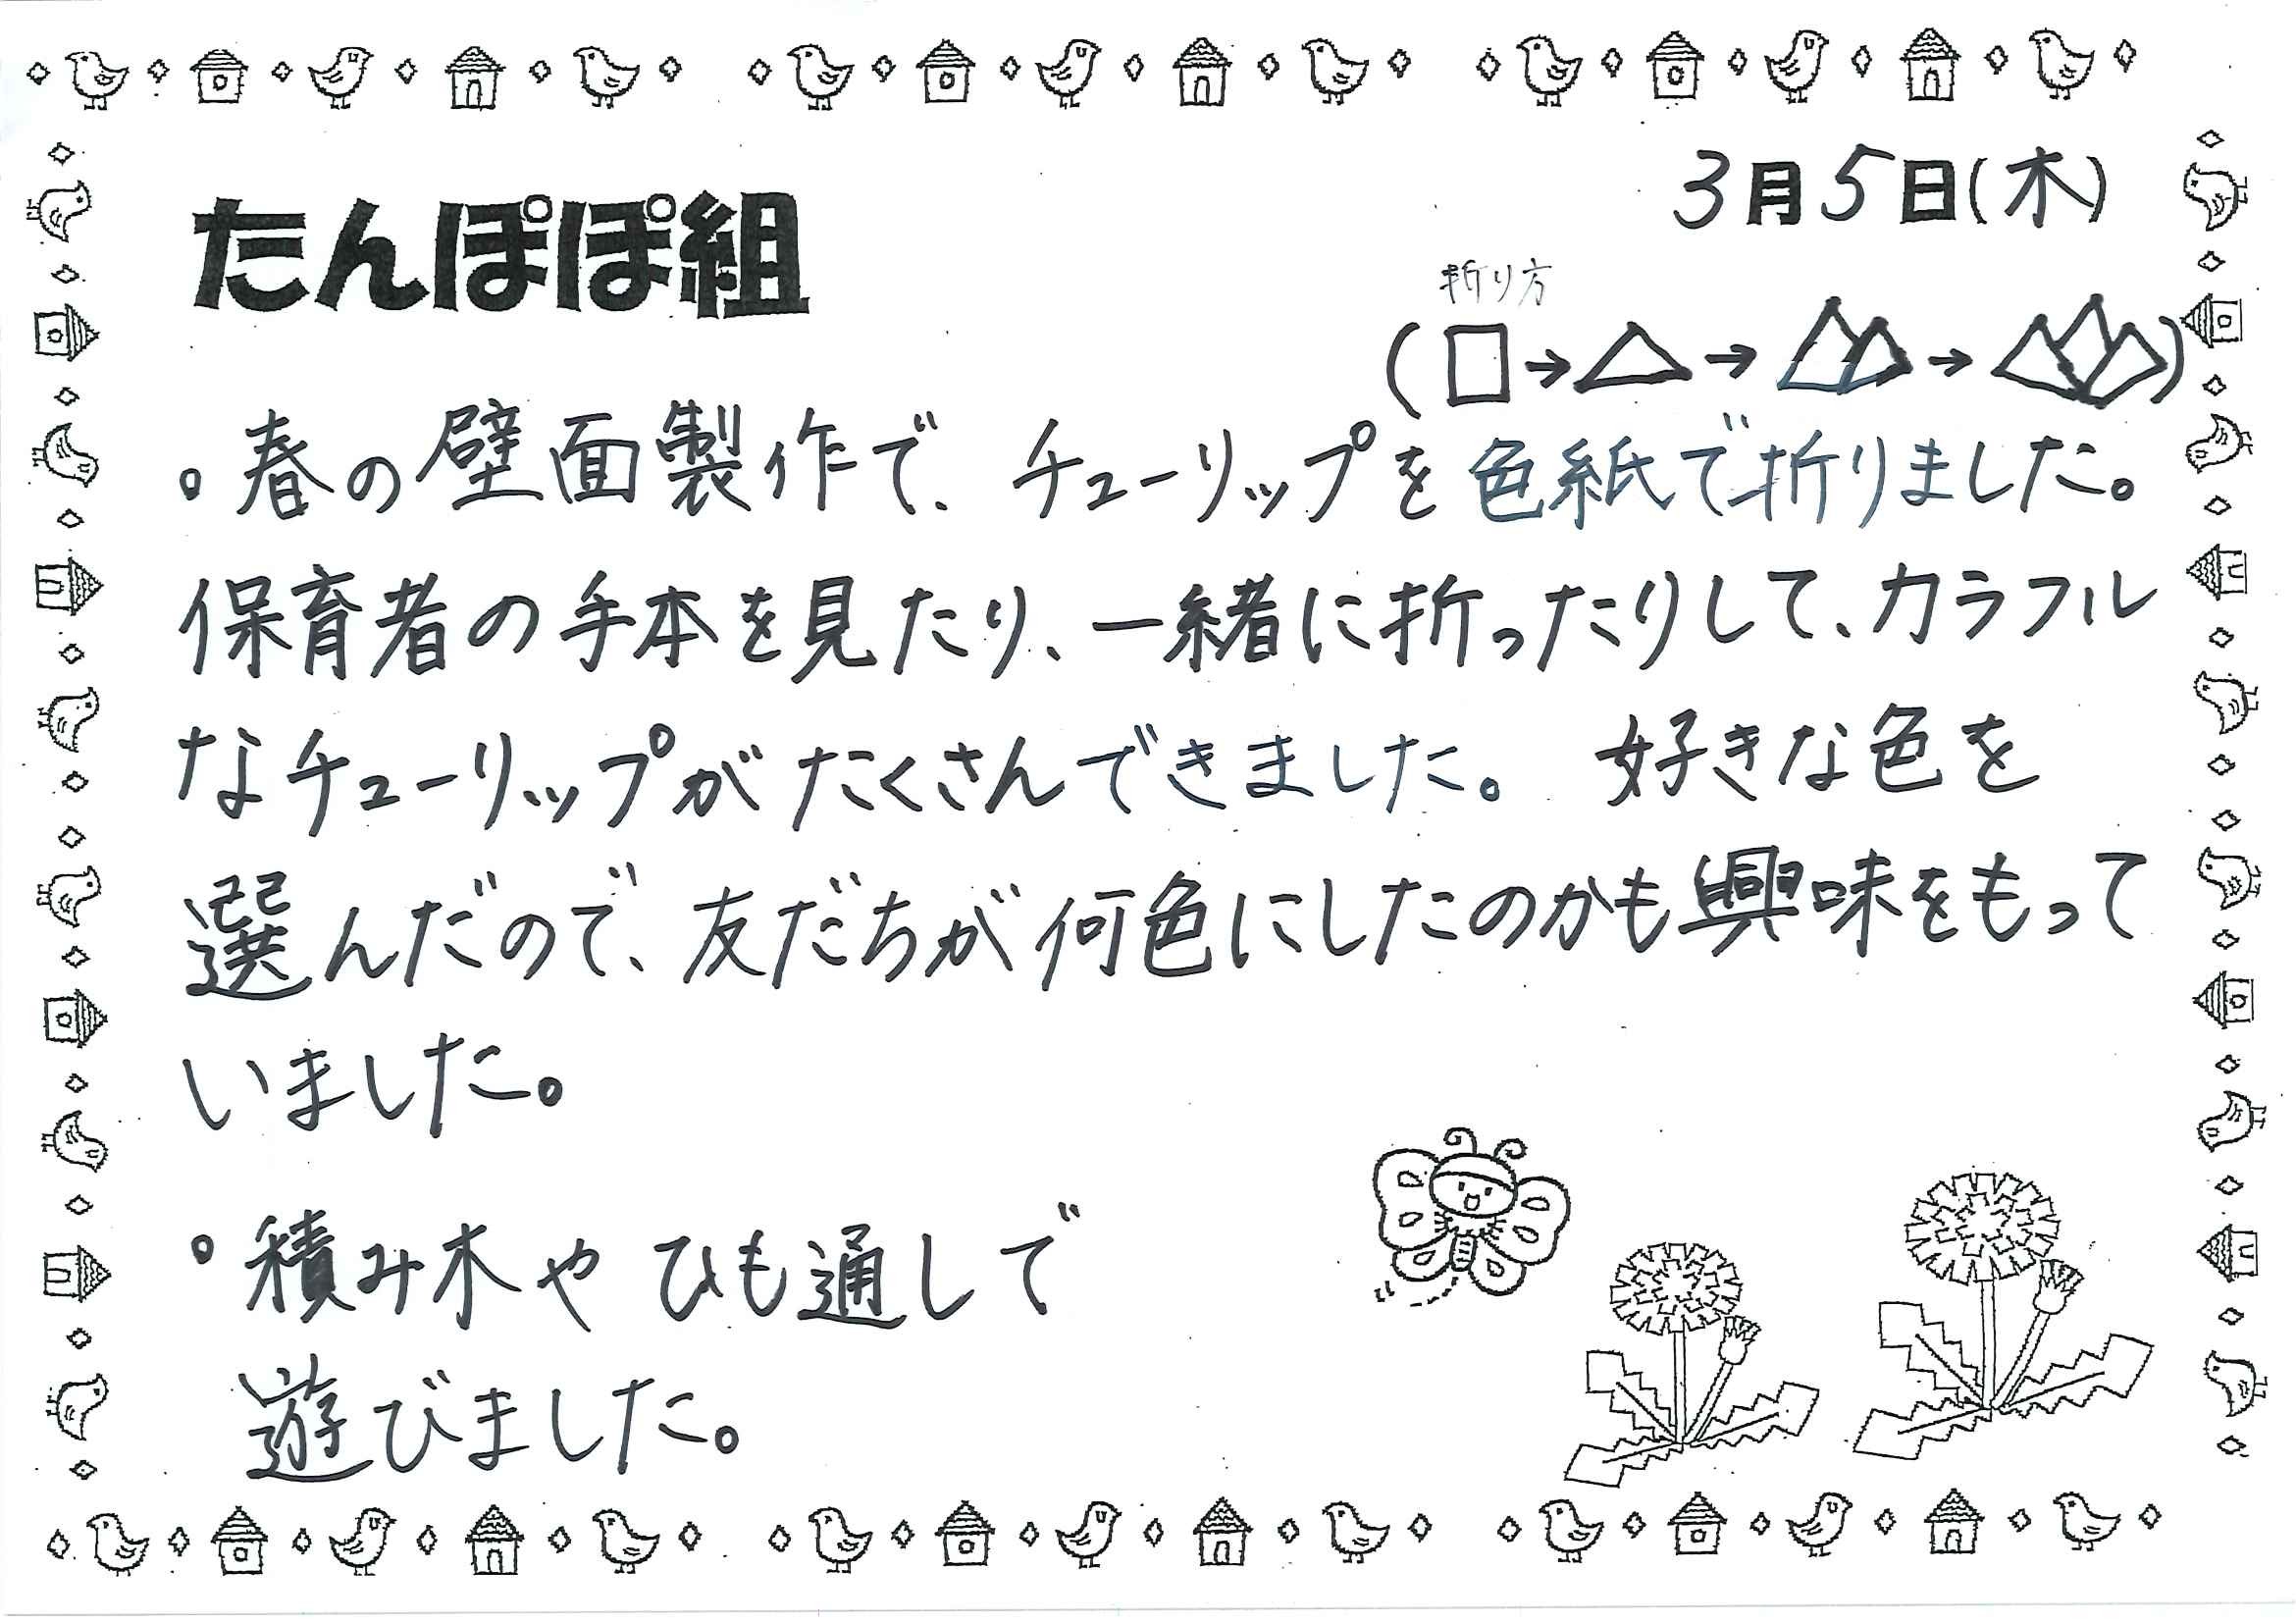 3月5日(木)
たんぽぽ組
折り方
(□→△→→)
。春の壁面製作で、チューリップを色紙で折りました。
保育者の手本を見たり、一緒に折ったりして、カラフル
なチューリップがたくさんできました。 好きな色を
選んだので、友だちが何色にしたのかも興味をもって
いました。
。積み木やひも通しで
遊びました。